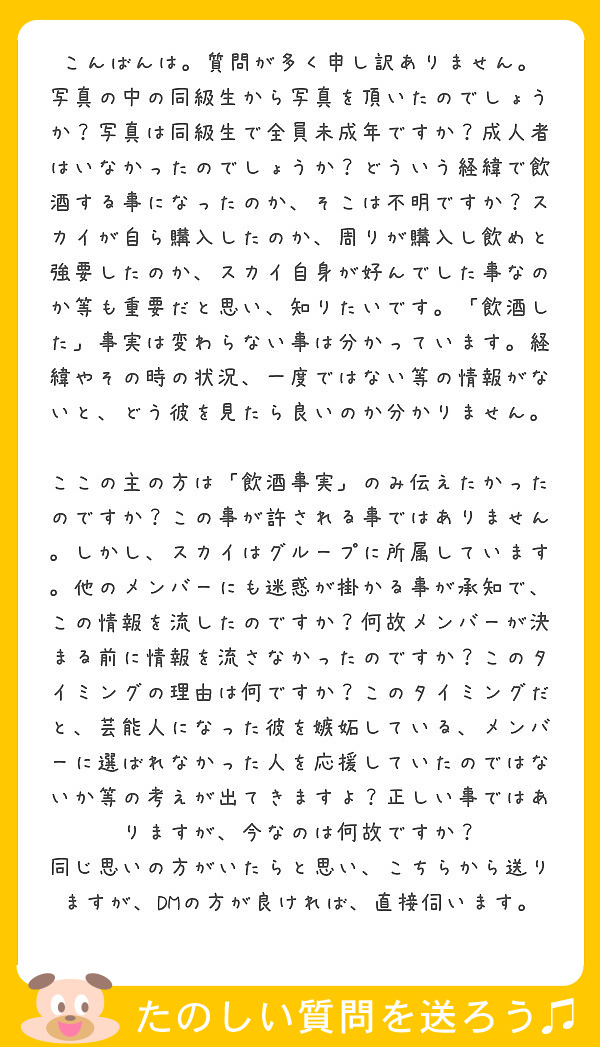 こんばんは。質問が多く申し訳ありません。
写真の中の同級生から写真を頂いたのでしょう
か?写真は同級生で全員未成年ですか?成人者
はいなかったのでしょうか?どういう経緯で飲
酒する事になったのか、そこは不明ですか?ス
カイが自ら購入したのか、周りが購入し飲めと
強要したのか、スカイ自身が好んでした事なの
か等も重要だと思い、知りたいです。「飲酒し
た」事実は変わらない事は分かっています。経
緯やその時の状況、一度ではない等の情報がな
いと、どう彼を見たら良いのか分かりません。
ここの主の方は「飲酒事実」のみ伝えたかった
のですか?この事が許される事ではありません
。しかし、スカイはグループに所属しています
。他のメンバーにも迷惑が掛かる事が承知で、
この情報を流したのですか?何故メンバーが決
まる前に情報を流さなかったのですか?このタ
イミングの理由は何ですか?このタイミングだ
と、芸能人になった彼を嫉妬している、メンバ
ーに選ばれなかった人を応援していたのではな
いか等の考えが出てきますよ?正しい事ではあ
りますが、今なのは何故ですか?
同じ思いの方がいたらと思い、こちらから送り
ますが、DMの方が良ければ、直接伺います。
たのしい質問を送ろう♫